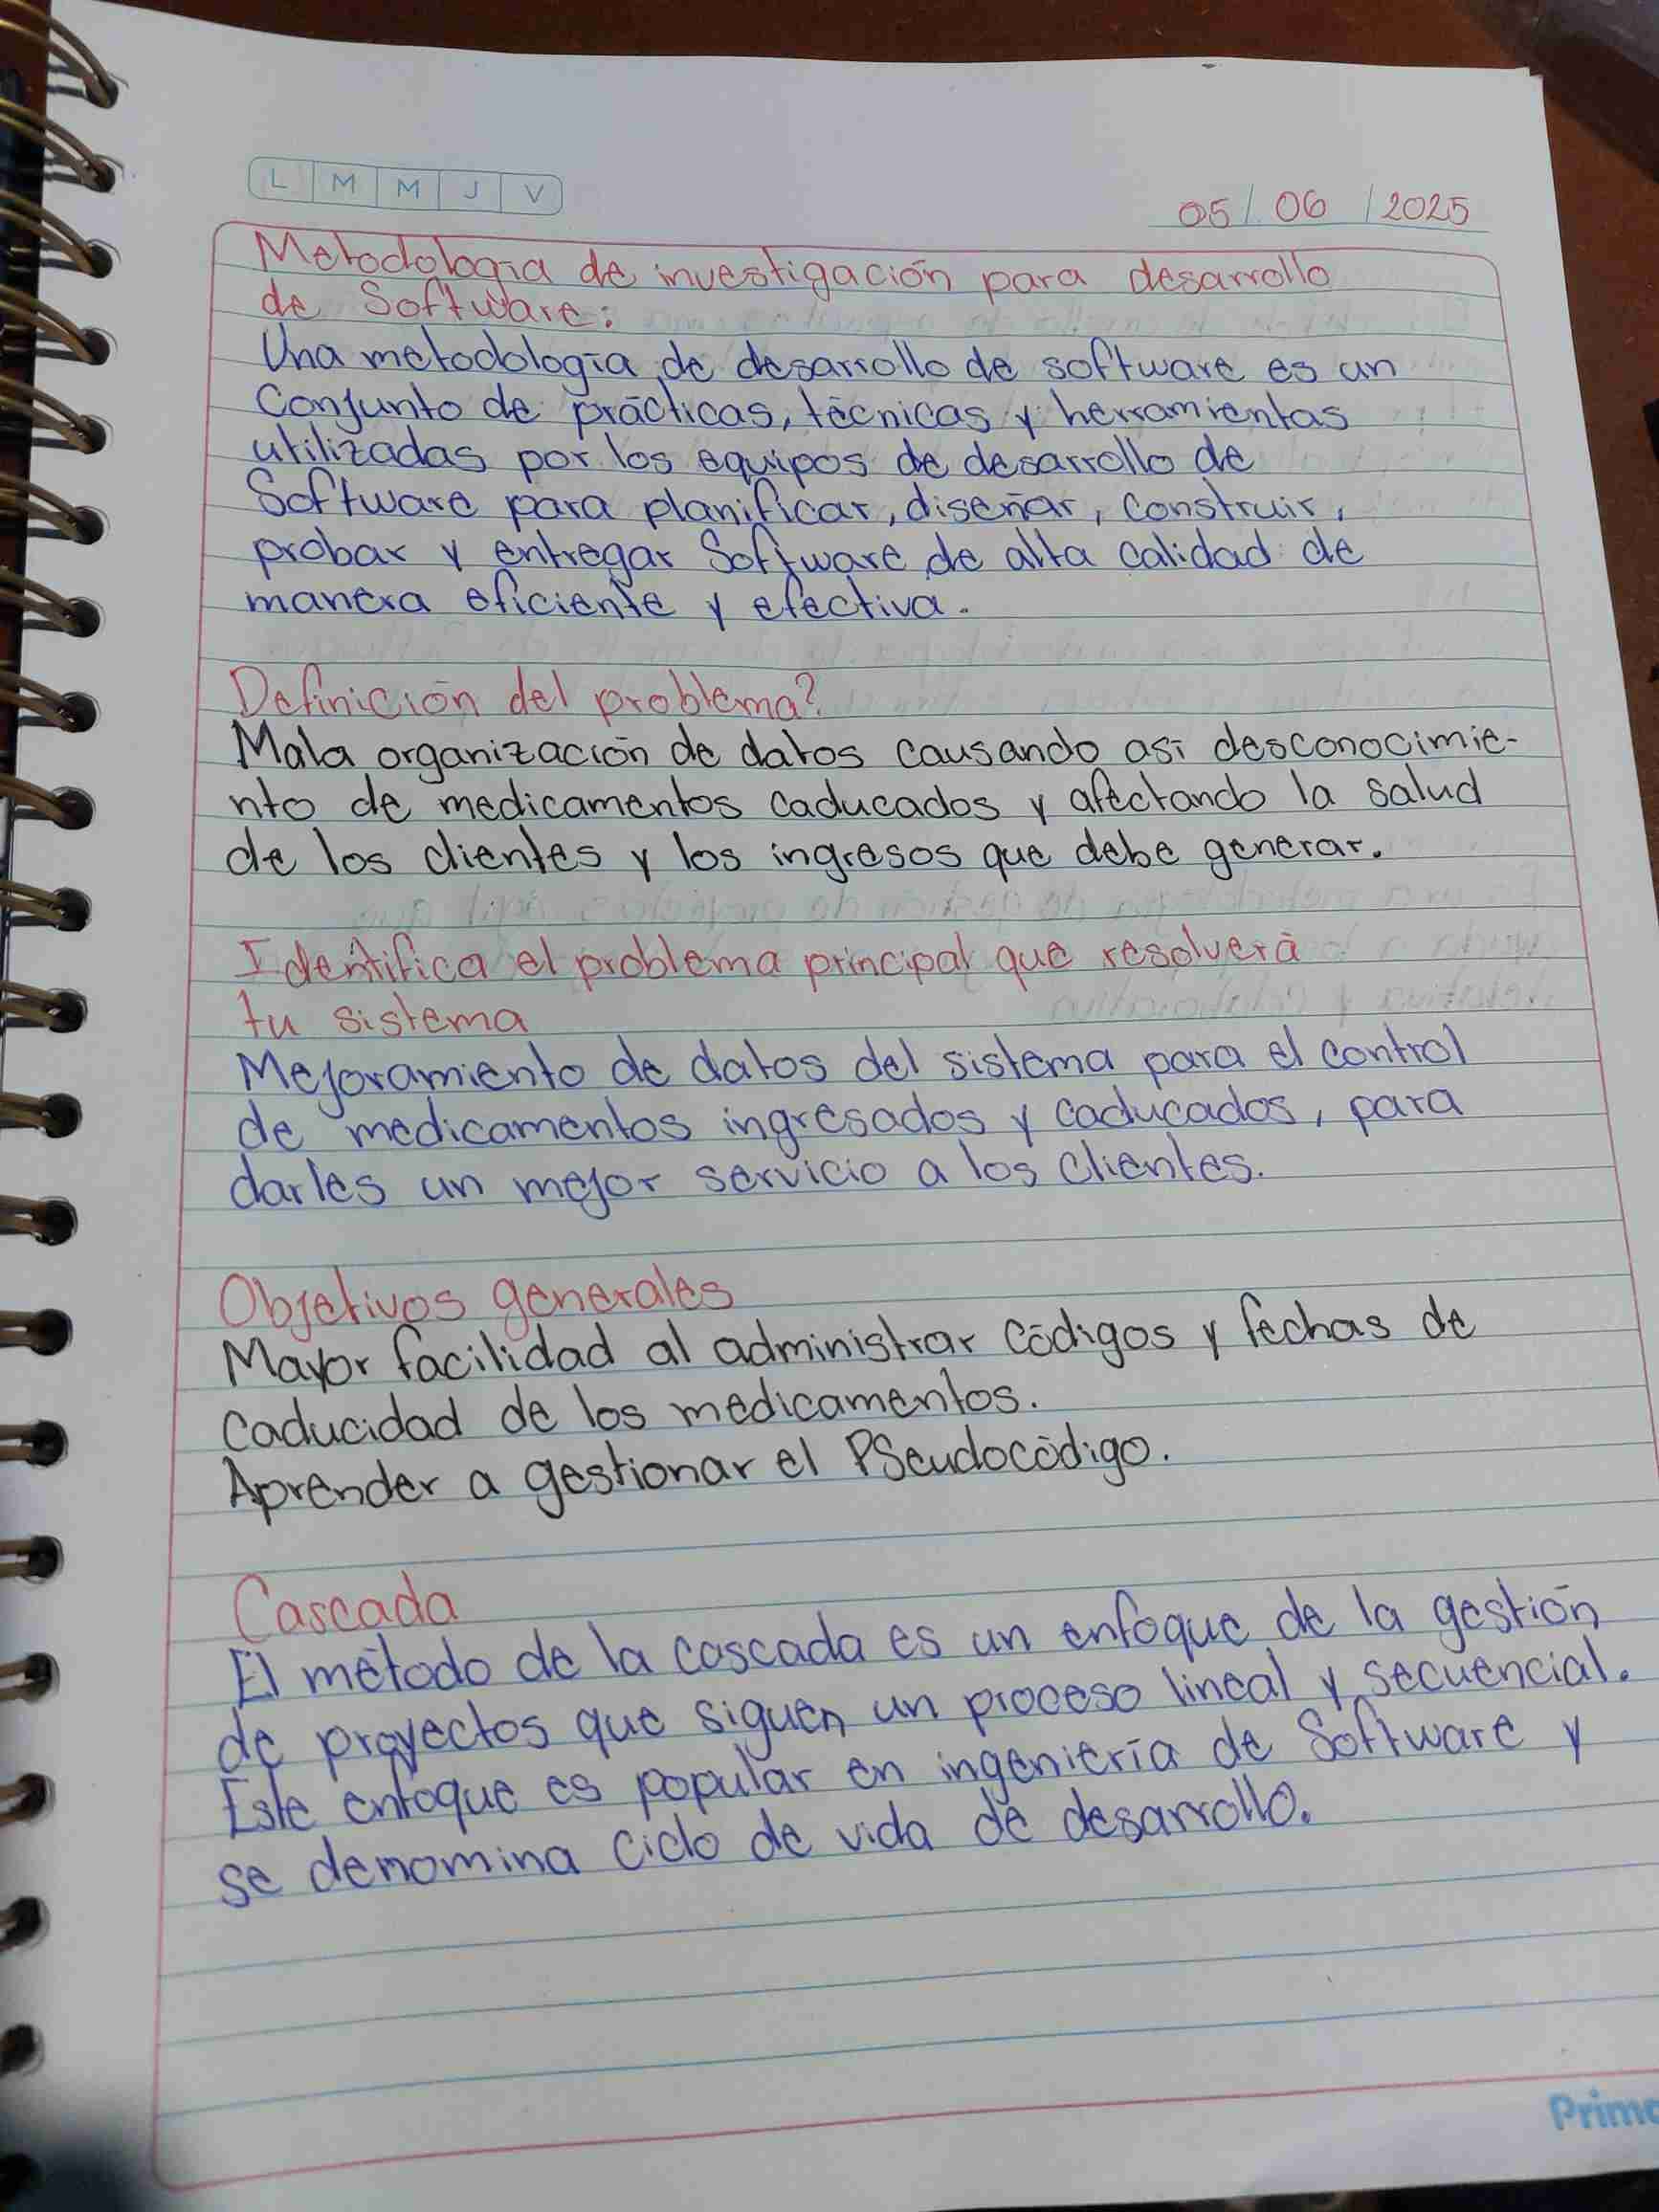 L M M J V
05/ 06 /2025
Metodología de investigación para desarrollo
de Software:
Una metodología de desarrollo de software es un
Conjunto de prácticas, técnicas y herramientas
utilizadas por los equipos de desarrollo de
Software para planificar, diseñar, construir,
probar y entregar Software de alta calidad de
manera eficiente y efectiva.
Definición del problema?
Mala organización de datos causando así desconocimie-
nto de medicamentos caducados y afectando la salud
de los clientes y los ingresos que debe generar.
Identifica el problema principal que resolverá
tu sistema
Mejoramiento de datos del sistema para el control
de medicamentos ingresados y caducados, para
darles un mejor servicio a los clientes.
Objetivos generales
Mayor facilidad al administrar códigos y fechas de
caducidad de los medicamentos.
Aprender a gestionar el PSeudocódigo.
Cascada
El método de la cascada es un enfoque de la gestión
de proyectos que siguen un proceso lineal y secuencial.
Este enfoque es popular en ingeniería de Software y
se denomina ciclo de vida de desarrollo.